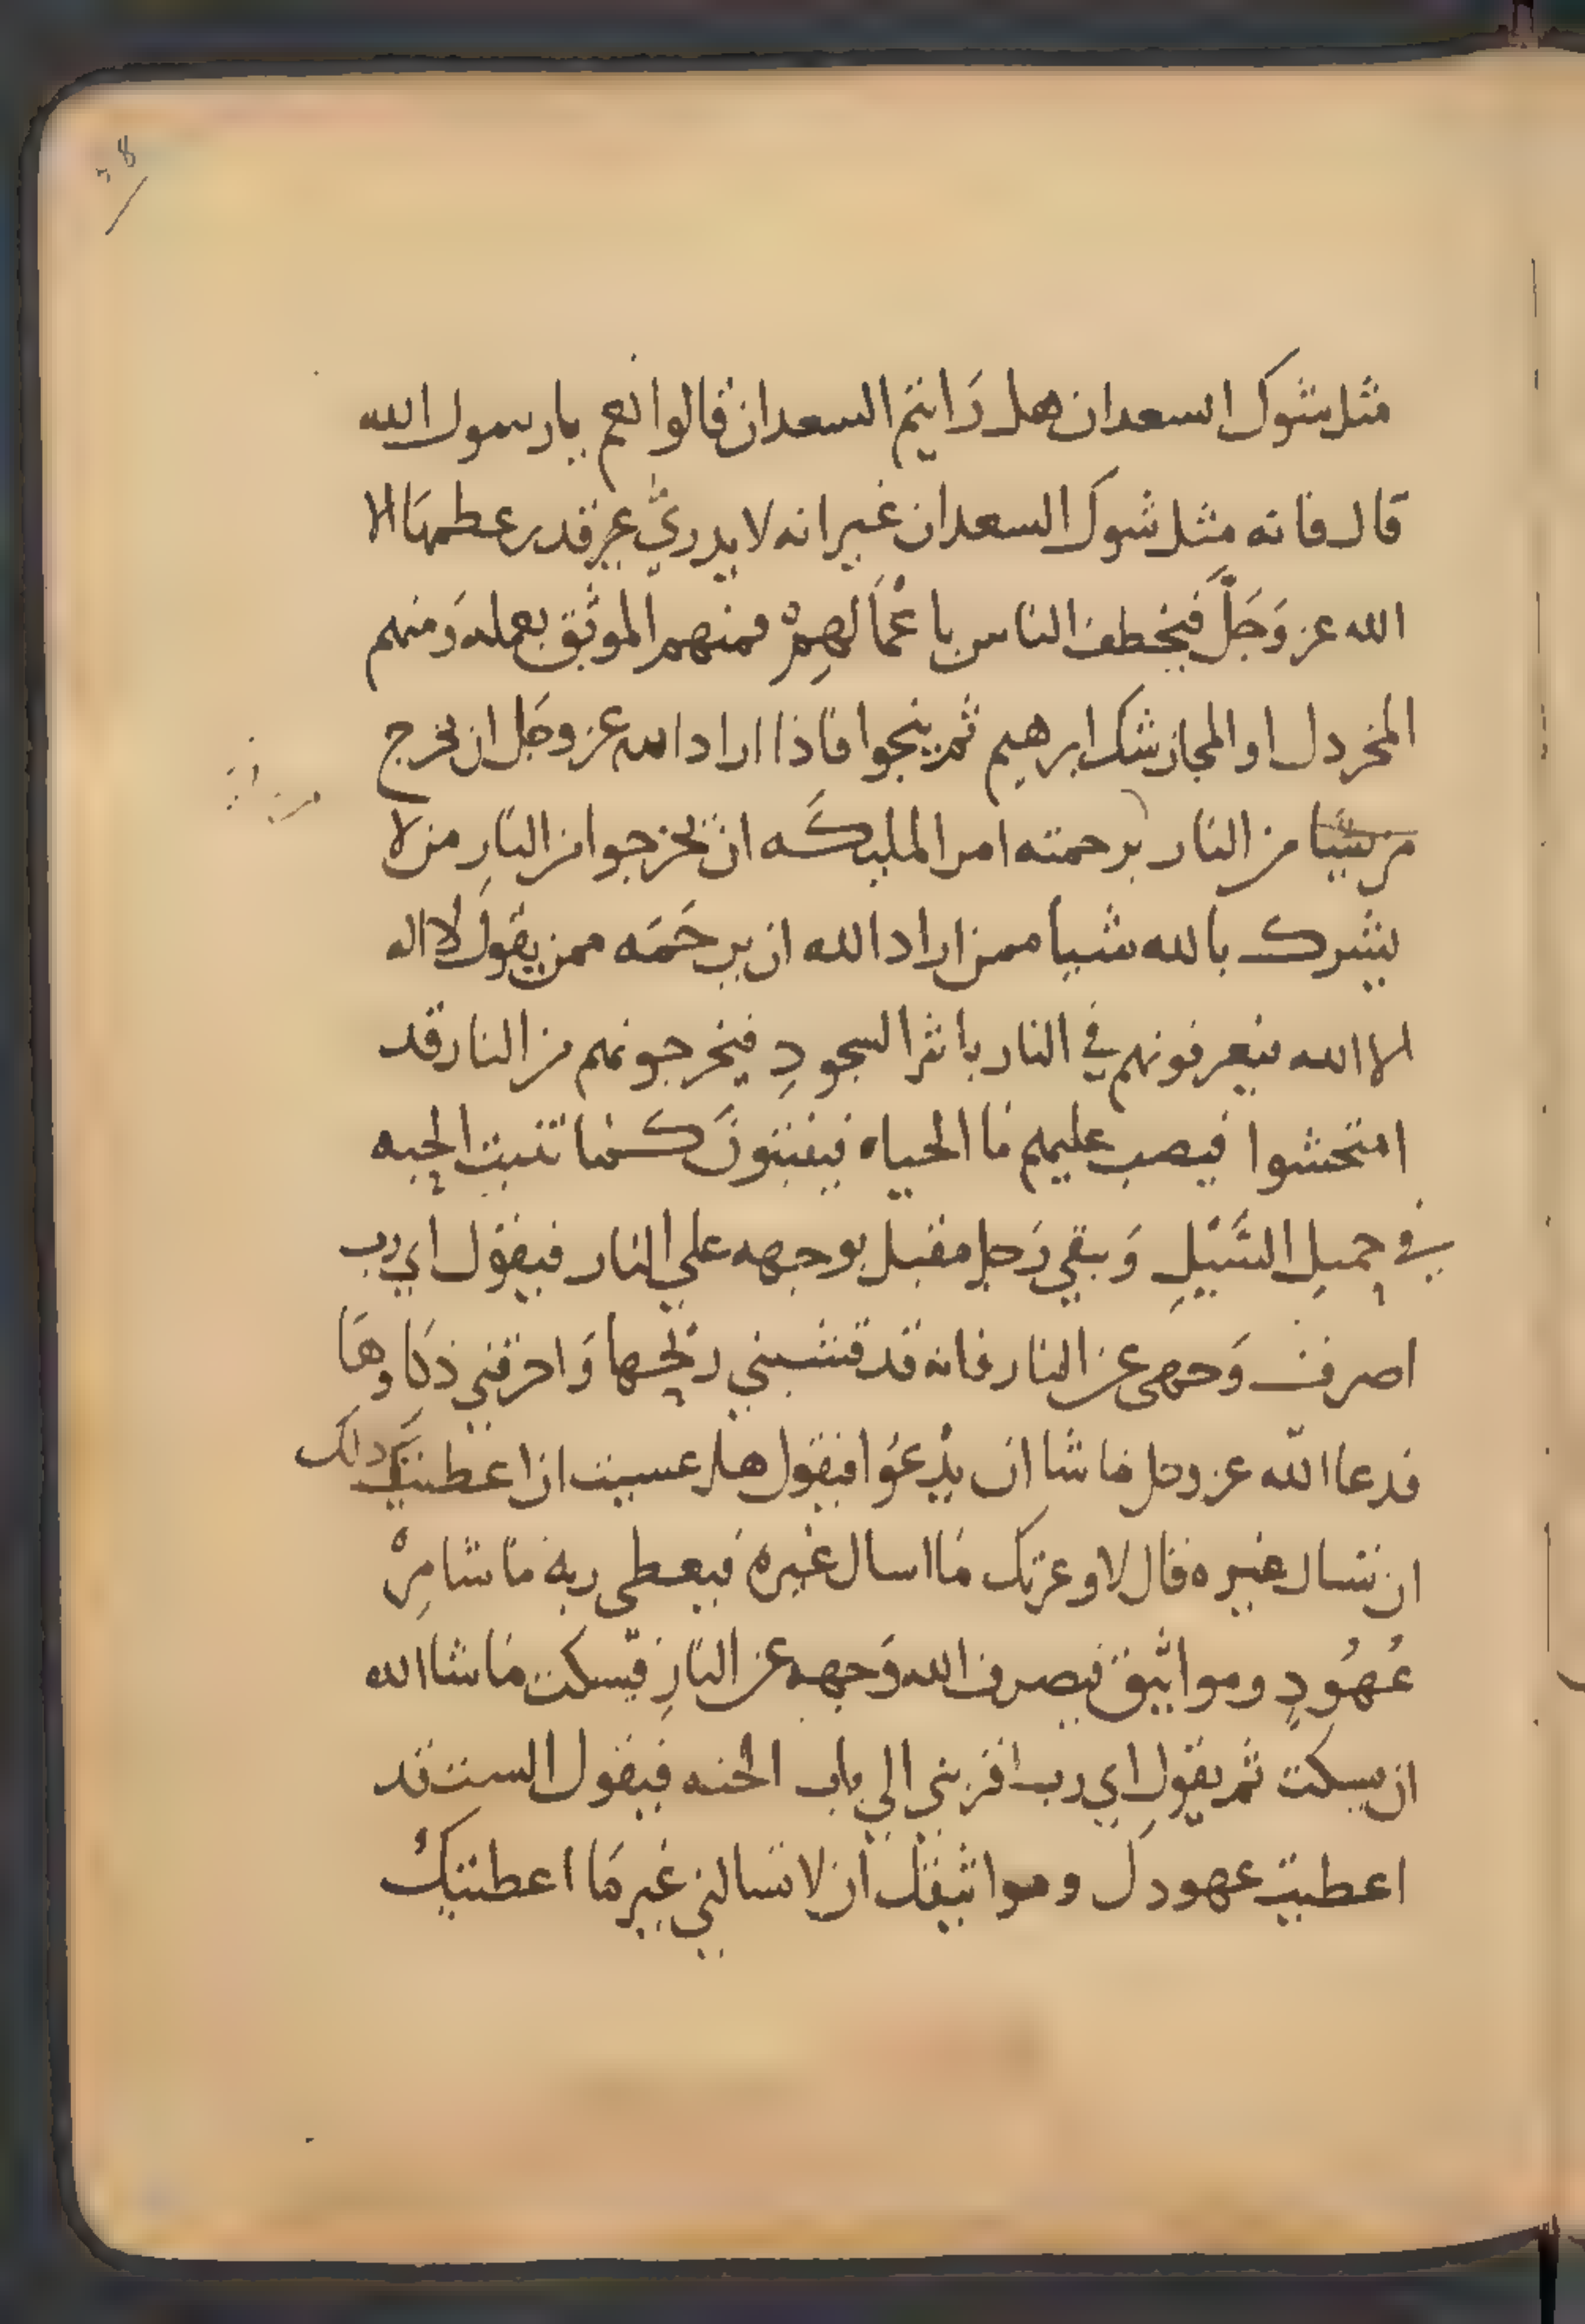 38
مثل شوك السعدان هل رَايتم السعدان قالوا نعم يا رسول الله
قال فانه مثل شوك السعدان غير انه لا يدري عز قدر عظمها الا
الله عز وَجَلَّ فيخطف الناس باعْمَالهِمْ فمنهم الموثق بعمله وَمنهم
المخردل او المجاز شك ابرهيم ثم ينجوا فاذا اراد الله عز وجل ان يخرج
من النار برحمته امر المليكه ان يخرجوا من النارِ من لا
يشرك بالله شيا ممن اراد الله ان يرحَمَه ممن يقولَ لا اله
الا الله فيعرفونهم في النار باثر السجودِ فيخرجونهم من النار قد
امتحشوا فيصب عليهم ما الحياه فينبتونَ كما تنبت الحبه
في حميلِ السَّيْلِ وَيبقي رَجل مقبل بوجهه علي النار فيقول اي رب
اصرف وَجهى عن النار فانه قد قشبني ريحها وَاحرقني ذكاوهَا
فدعا الله عز وجل ما شا ان يدْعُوا فيقول هل عسيت ان اعطيتك ذلك
ان تسال غيره فقال لا وعزتك مَا اسال غيره فيعطى ربه ما شا مِنْ
عُهُودٍ ومواثيق فيصرف الله وَجهه عن النارِ فيسكت مَا شا الله
ان يسكت ثم يقول اي رب قربني الي باب الجنه فيقول الست قد
اعطيت عهودكَ ومواثيقك ان لا تسالني غير مَا اعطيتكَ